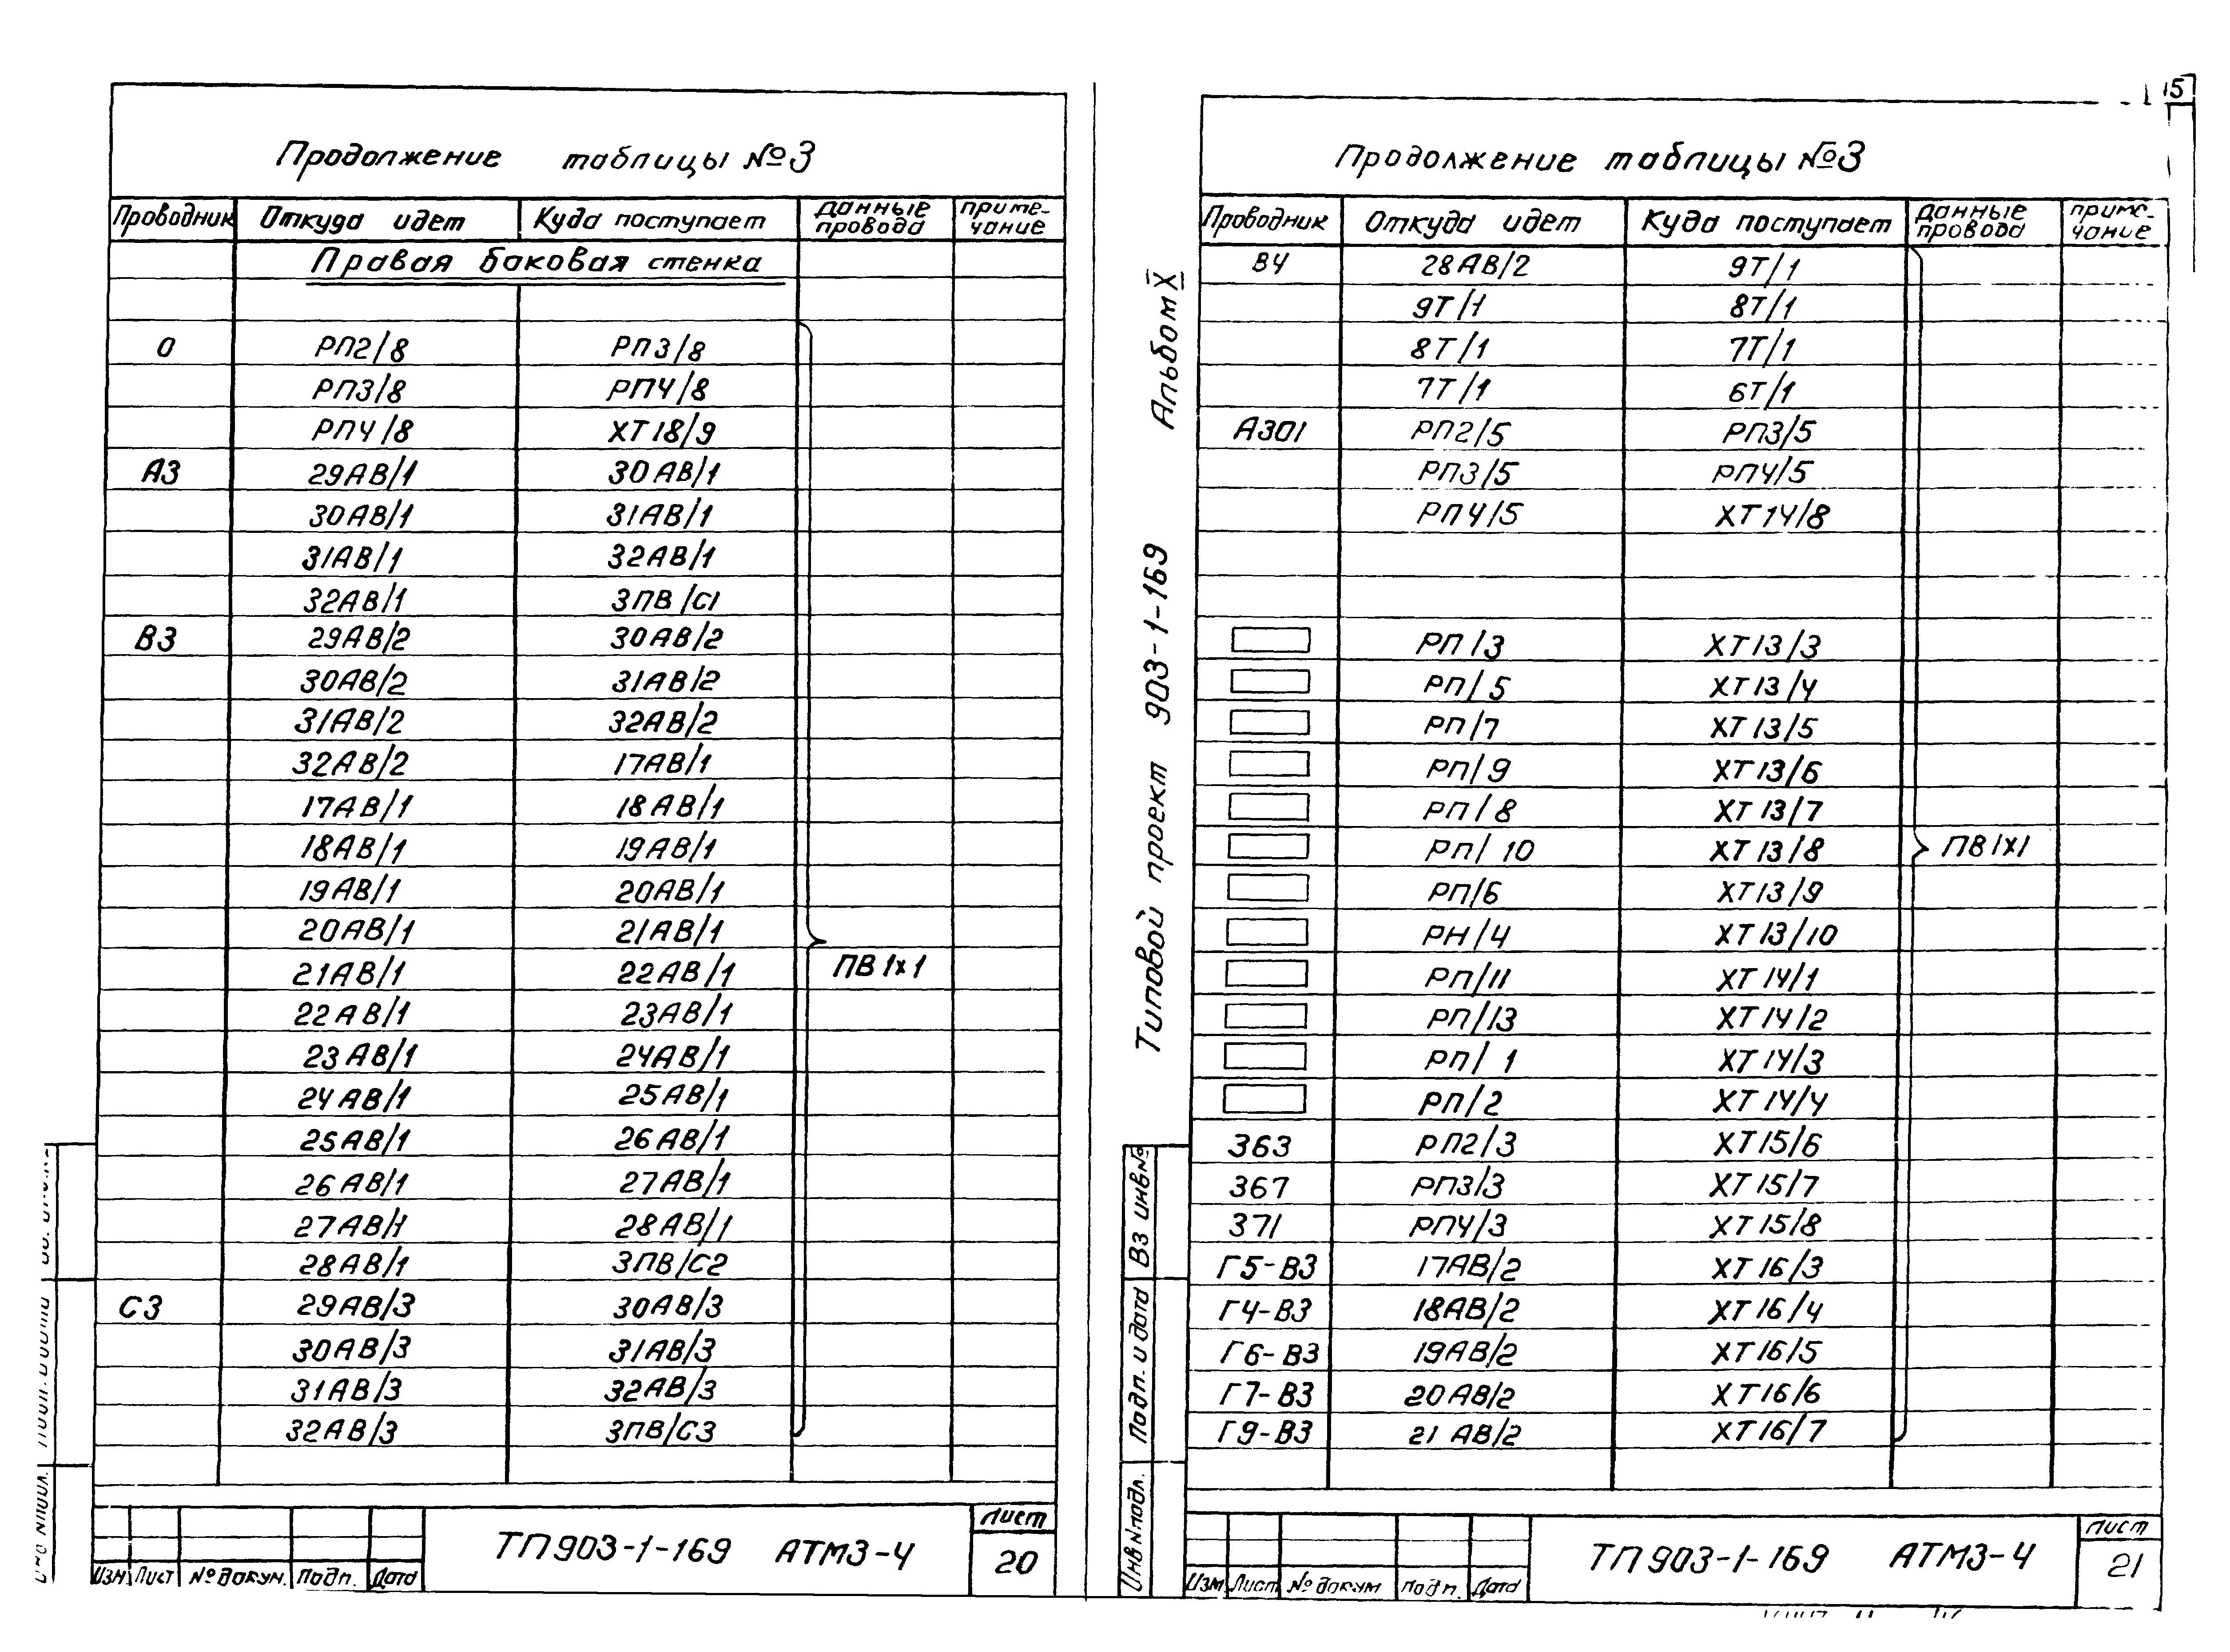 Продолжение таблицы №3
Проводник Откуда идет Куда поступает данные провода приме-чание
Правая баковая стенка
0 РП2/8 РП3/8
РП3/8 РП4/8
РП4/8 ХТ18/9
А3 29АВ/1 30АВ/1
30АВ/1 31АВ/1
31АВ/1 32АВ/1
32АВ/1 3ПВ/С1
В3 29АВ/2 30АВ/2
30АВ/2 31АВ/2
31АВ/2 32АВ/2
32АВ/2 17АВ/1
17АВ/1 18АВ/1
18АВ/1 19АВ/1
19АВ/1 20АВ/1
20АВ/1 21АВ/1
21АВ/1 22АВ/1 ПВ1х1
22АВ/1 23АВ/1
23АВ/1 24АВ/1
24АВ/1 25АВ/1
25АВ/1 26АВ/1
26АВ/1 27АВ/1
27АВ/1 28АВ/1
28АВ/1 3ПВ/С2
С3 29АВ/3 30АВ/3
30АВ/3 31АВ/3
31АВ/3 32АВ/3
32АВ/3 3ПВ/С3
Изм Лист № докум. Подп. Дата
ТП903-1-169 АТМ3-4
Лист
20
15
Альбом X
Типовой проект 903-1-169
Вз инв№
Подп. и дата
Инв№подл.
Продолжение таблицы №3
Проводник Откуда идет Куда поступает данные провода приме-чание
В4 28АВ/2 9Т/1
9Т/1 8Т/1
8Т/1 7Т/1
7Т/1 6Т/1
А301 РП2/5 РП3/5
РП3/5 РП4/5
РП4/5 ХТ14/8
РП/3 ХТ13/3
РП/5 ХТ13/4
РП/7 ХТ13/5
РП/9 ХТ13/6
РП/8 ХТ13/7
РП/10 ХТ13/8 ПВ1х1
РП/6 ХТ13/9
РН/4 ХТ13/10
РП/11 ХТ14/1
РП/13 ХТ14/2
РП/1 ХТ14/3
РП/2 ХТ14/4
363 РП2/3 ХТ15/6
367 РП3/3 ХТ15/7
371 РП4/3 ХТ15/8
Г5-В3 17АВ/2 ХТ16/3
Г4-В3 18АВ/2 ХТ16/4
Г6-В3 19АВ/2 ХТ16/5
Г7-В3 20АВ/2 ХТ16/6
Г9-В3 21АВ/2 ХТ16/7
Изм Лист № докум Подп. Дата
ТП903-1-169 АТМ3-4
Лист
21